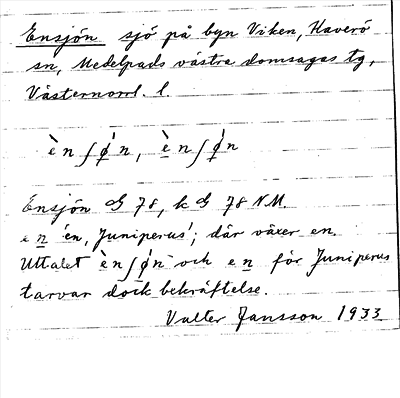 Ensjön sjö på byn Viken, Haverö
sn, Medelpads västra domsagas tg,
Västernorrl. l.
è n ʃ ǿ n, è n ʃ ǿ n
Ensjön G 78, k G 78 N.M.
e n 'en, Juniperus'; där växer en.
Uttalet è n ʃ ǿ n och e n för Juniperus
tarvar dock bekräftelse.
Valter Jansson 1933